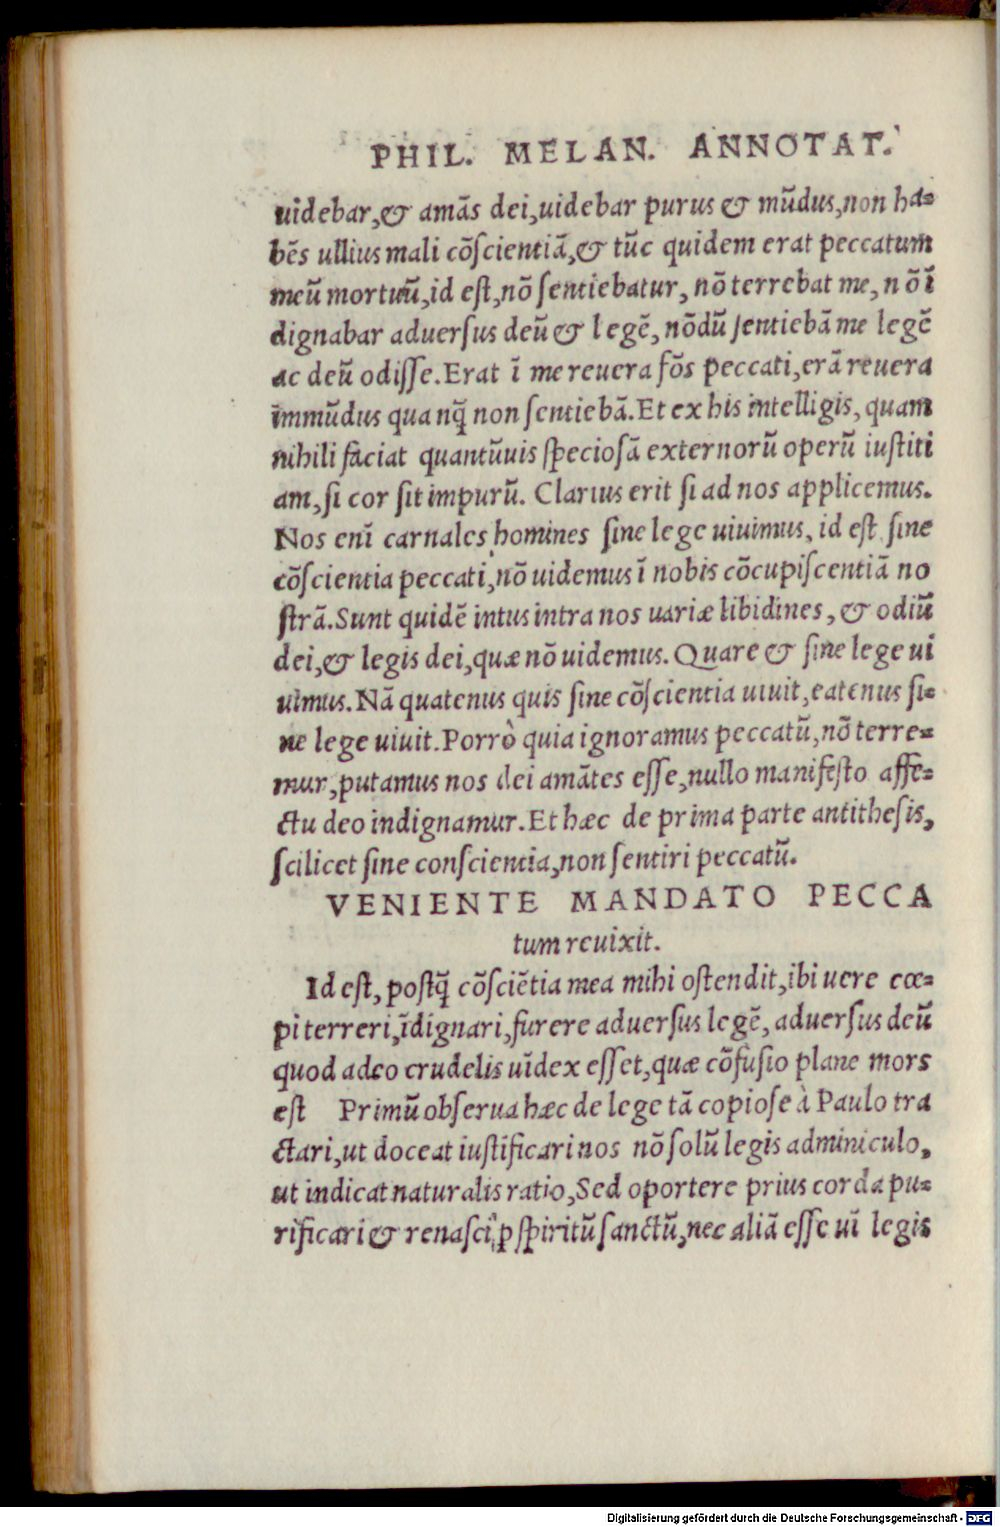 PHIL. MELAN. ANNOTAT.
uidebar,& amãs dei,uidebar purus & mũdus,non ha-
bẽs ullius mali cõscientiã,& tũc quidem erat peccatum
meũ mortuũ,id est,nõ sentiebatur, nõ terrebat me, nõ ĩ
dignabar aduersus deũ & legẽ, nõdũ sentiebã me legẽ
ac deũ odisse.Erat ĩ me reuera fõs peccati,erã reuera
immũdus quanq̃ non sentiebã.Et ex his intelligis, quam
nihili faciat quantũuis speciosã externorũ operũ iustiti
am,si cor sit impurũ. Clarius erit si ad nos applicemus.
Nos enĩ carnales homines sine lege uiuimus, id est sine
cõscientia peccati,nõ uidemus ĩ nobis cõcupiscentiã no
strã.Sunt quidẽ intus intra nos uariæ libidines, & odiũ
dei,& legis dei,quæ nõ uidemus. Quare & sine lege ui
uimus. Nã quatenus quis sine cõscientia uiuit,eatenus si-
ne lege uiuit.Porrò quia ignoramus peccatũ,nõ terre-
mur,putamus nos dei amãtes esse,nullo manifesto affe-
ctu deo indignamur.Et hæc de prima parte antithesis,
scilicet sine conscientia,non sentiri peccatũ.
VENIENTE MANDATO PECCA
tum reuixit.
Id est, postq̃ cõsciẽtia mea mihi ostendit,ibi uere cœ-
pi terreri,ĩdignari,furere aduersus legẽ, aduersus deũ
quod adeo crudelis uĩdex esset,quæ cõfusio plane mors
est Primũ obserua hæc de lege tã copiose à Paulo tra
ctari,ut doceat iustificari nos nõ solũ legis adminiculo,
ut indicat naturalis ratio,Sed oportere prius corda pu-
rificari & renasci,p spiritũ sanctũ,nec aliã esse uĩ legis
Digitalisierung gefördert durch die Deutsche Forschungsgemeinschaft - DFG